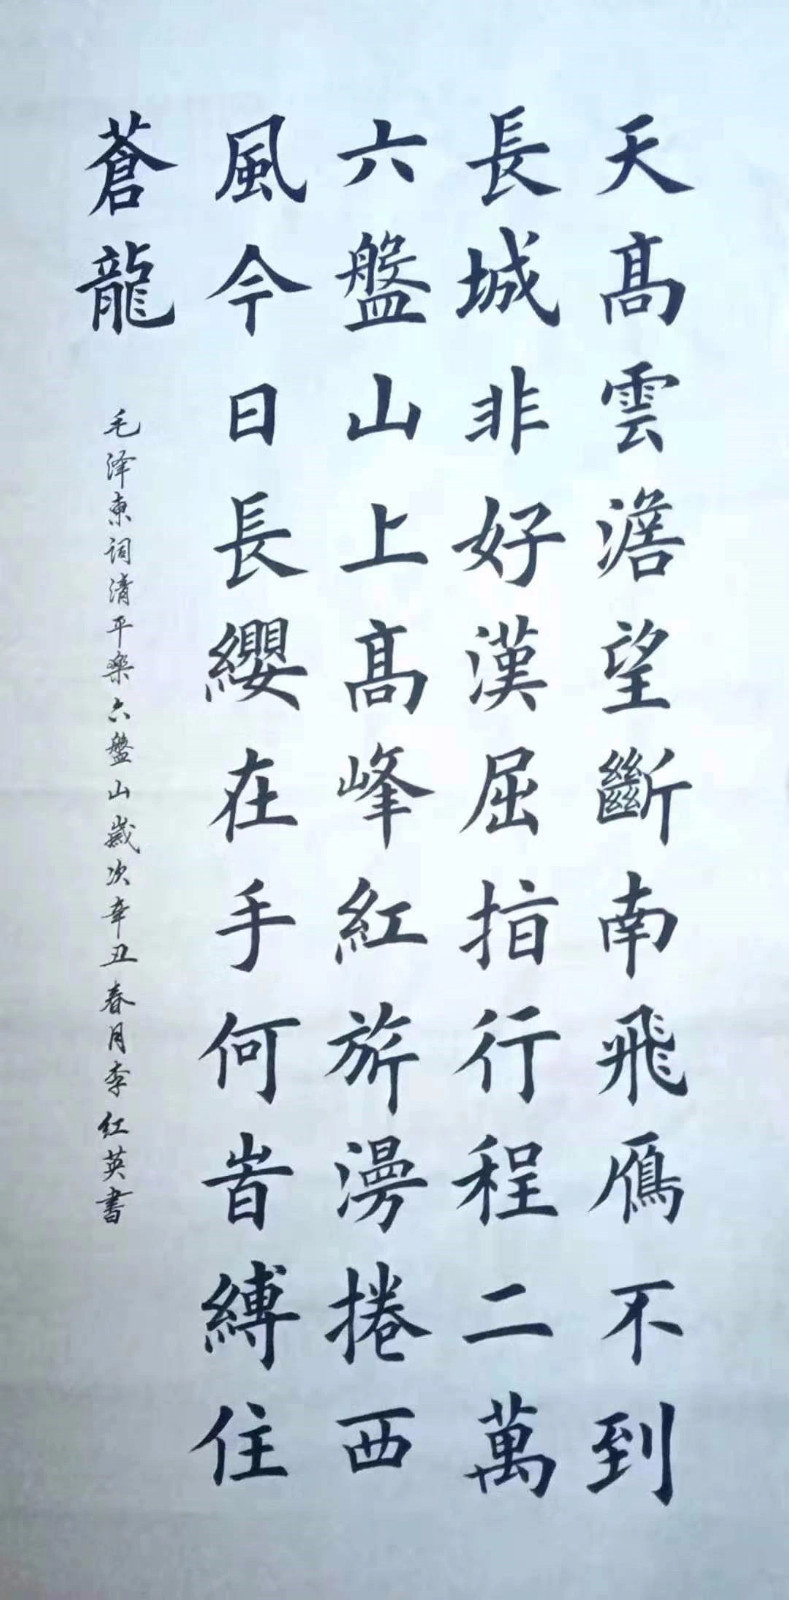 天髙雲澹望斷南飛鴈不到
長城非好漢屈指行程二萬
六盤山上髙峰紅旂漫捲西
風今日長纓在手何旹縛住
蒼龍
毛泽東词清平樂六盤山歲次辛丑春月李红英書